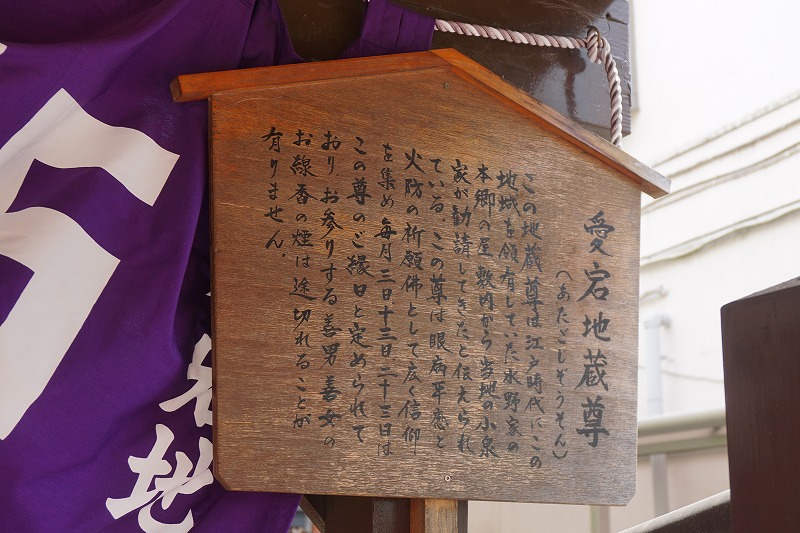 愛宕地蔵尊
（あたごじぞうそん）
この地蔵尊は江戸時代にこの
地域を領有していた水野家の
本郷の屋敷内から当地の小泉
家が勧請してきたと伝えられ
ている、この尊は眼病平癒と
火防の祈願佛として広く信仰
を集め毎月三日十三日二十三日は
この尊のご縁日と定められて
おり、お参りする善男善女の
お線香の煙は途切れることが
有りません。
地